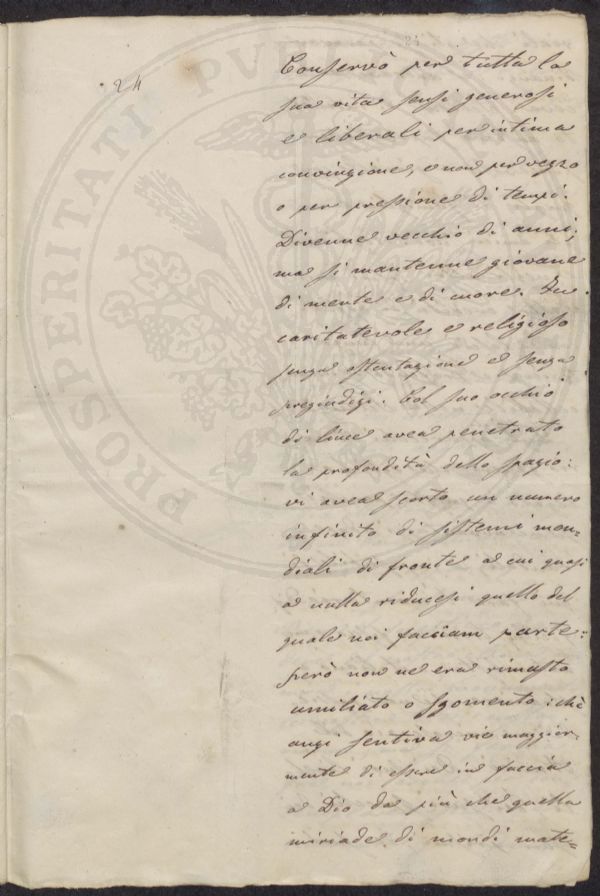 24
Conservò per tutta la
sua vita sensi generosi
e liberali per intima
convinzione, e non per vezzo
o per pressione di tempi.
Divenne vecchio di anni,
ma si mantenne giovane
di mente e di cuore. Fu
caritatevole e religioso
senza ostentazione e senza
pregiudizi. Col suo occhio
di lince avea penetrato
la profondità dello spazio:
vi avea scorto un numero
infinito di sistemi mon=
diali di fronte a cui quasi
a nulla riducesi quello del
quale noi facciam parte:
però non ne era rimasto
umiliato o sgomento: chè
anzi sentiva vie maggior=
mente di essere in faccia
a Dio da più che quella
miriade di mondi mate=
PROSPERITATI PVBL